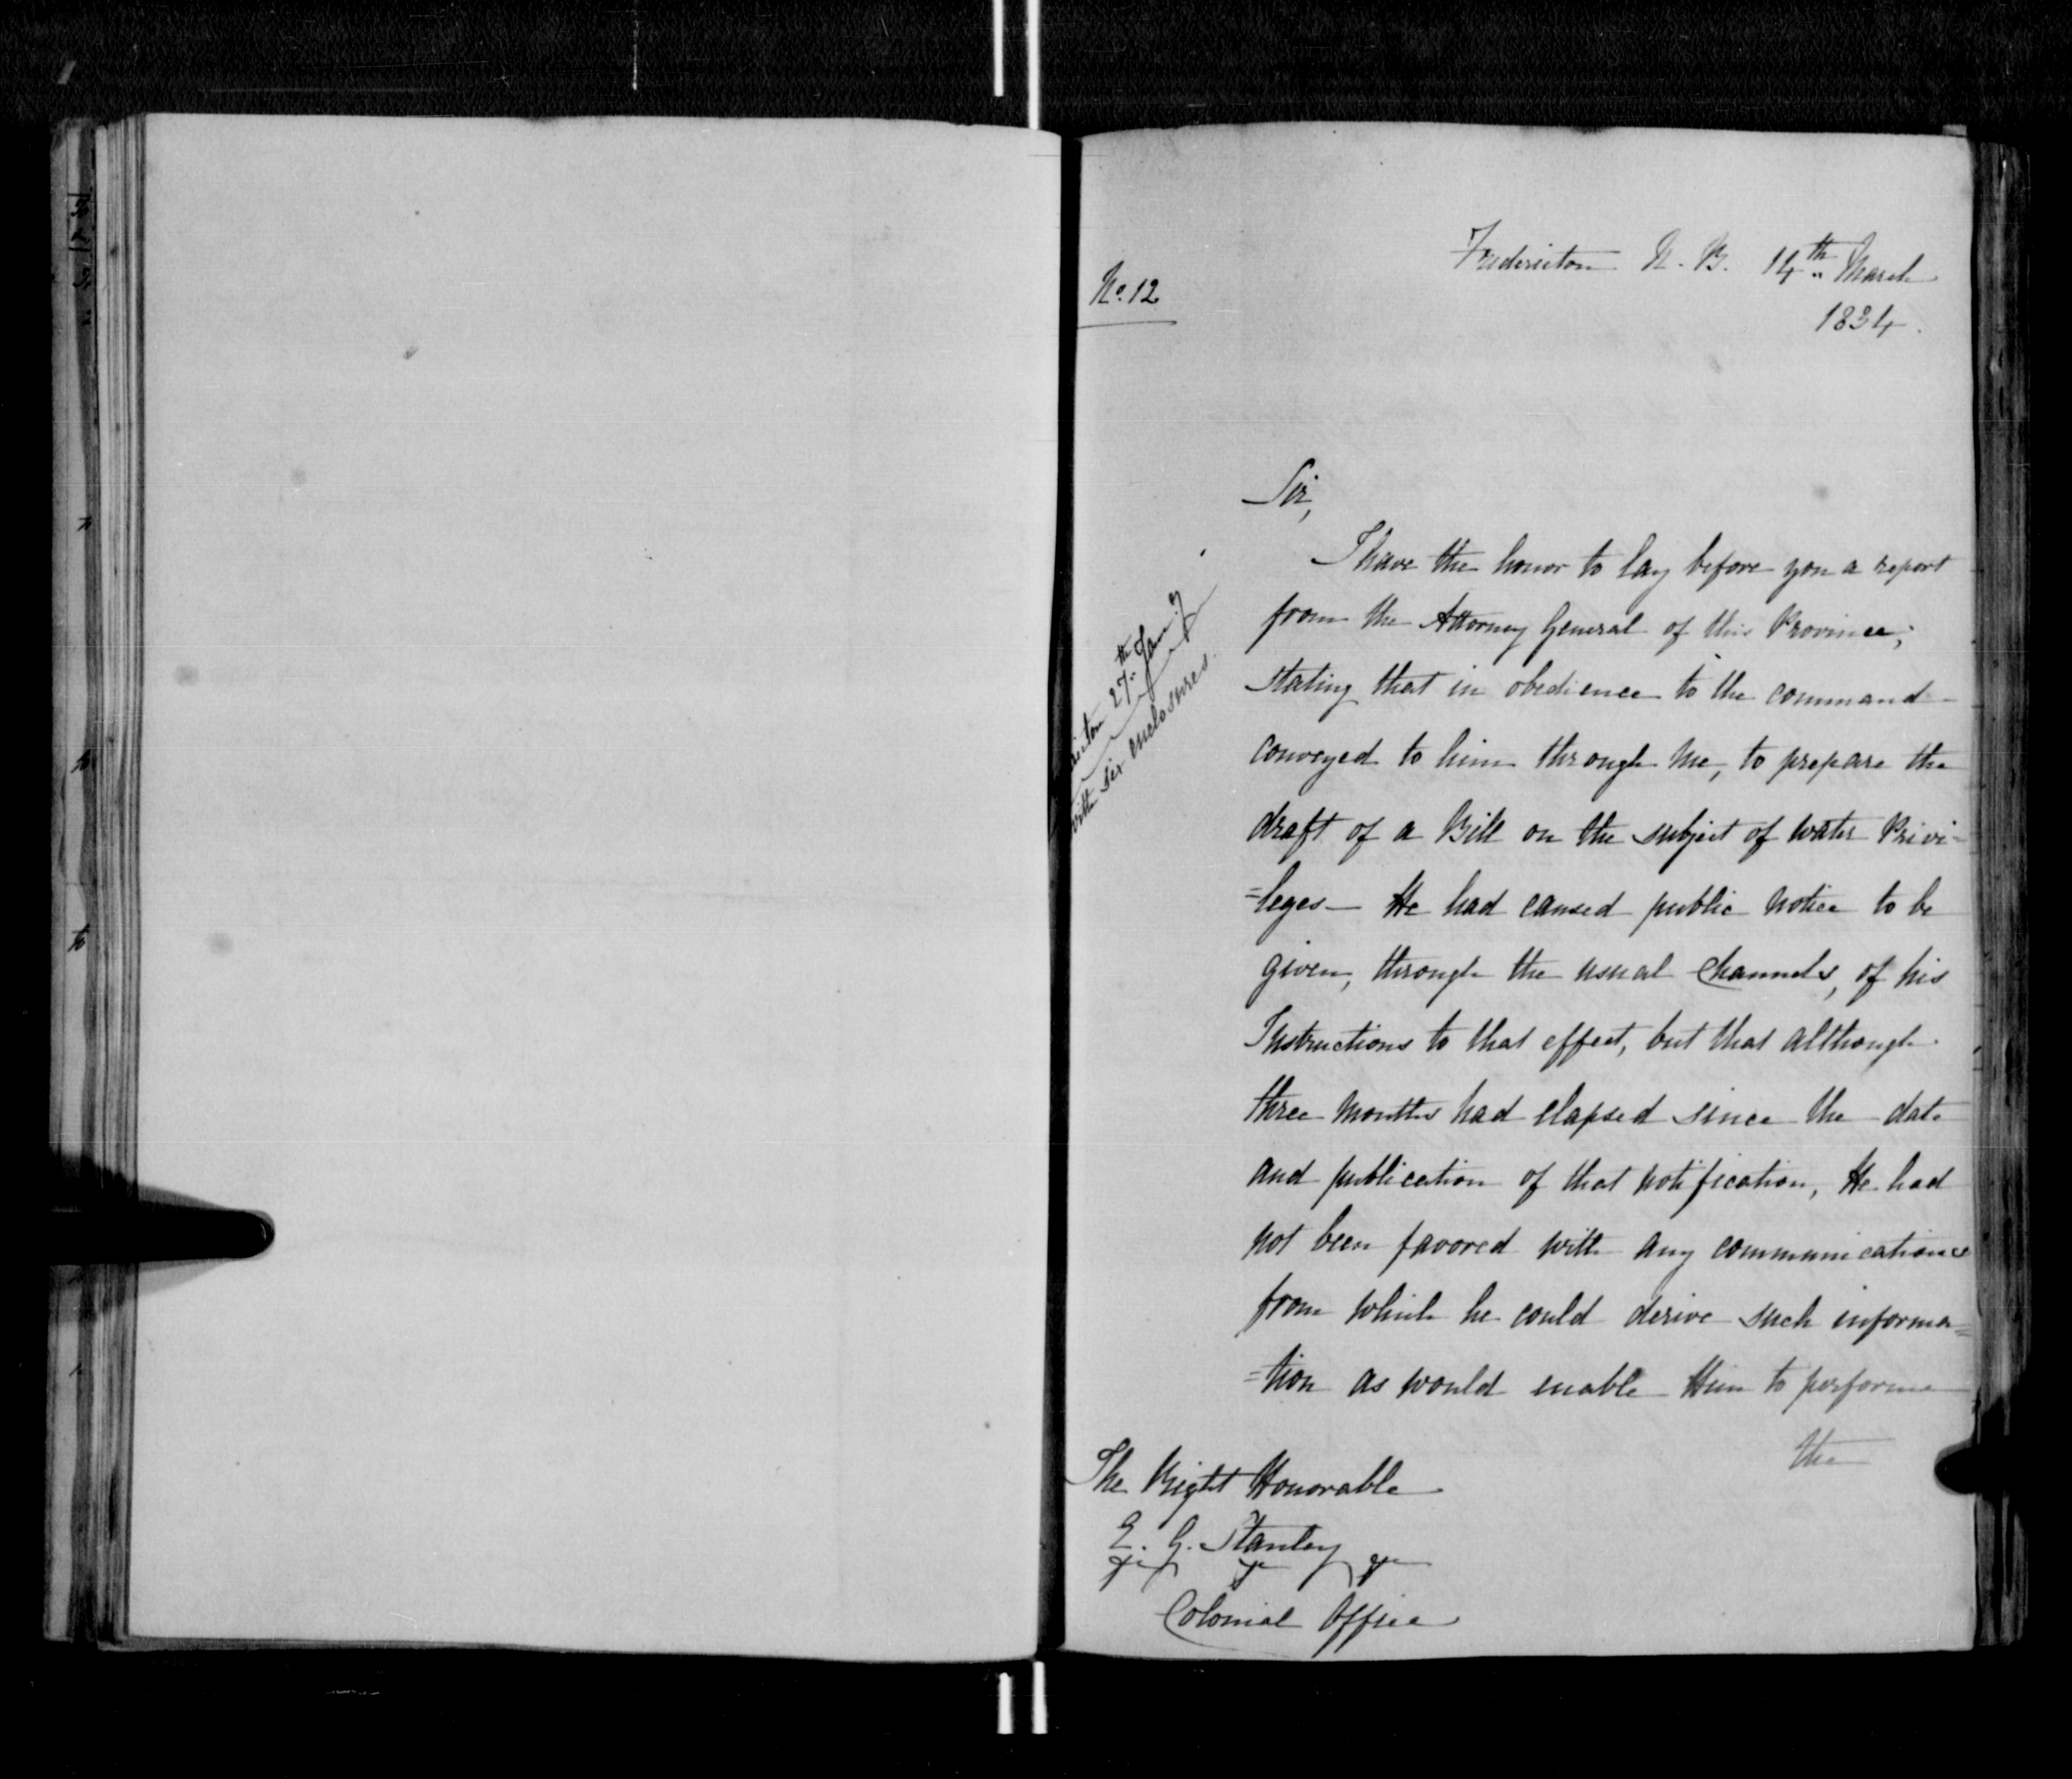 Fredericton N. B. 14th March
1834.
No. 12
Sir,
I have the honor to lay before you a report
from the Attorney General of this Province,
stating that in obedience to the command
conveyed to him through me, to prepare the
draft of a Bill on the subject of water Privi-
=leges— He had caused public notice to be
given, through the usual Channels, of his
Instructions to that effect, but that although
three months had elapsed since the date
and publication of that notification, He had
not been favored with any communications
from which he could derive such informa=
=tion as would enable Him to perform
the
27th Jany
with Six enclosures.
The Right Honorable
E. G. Stanley
&c &c &c
Colonial Office